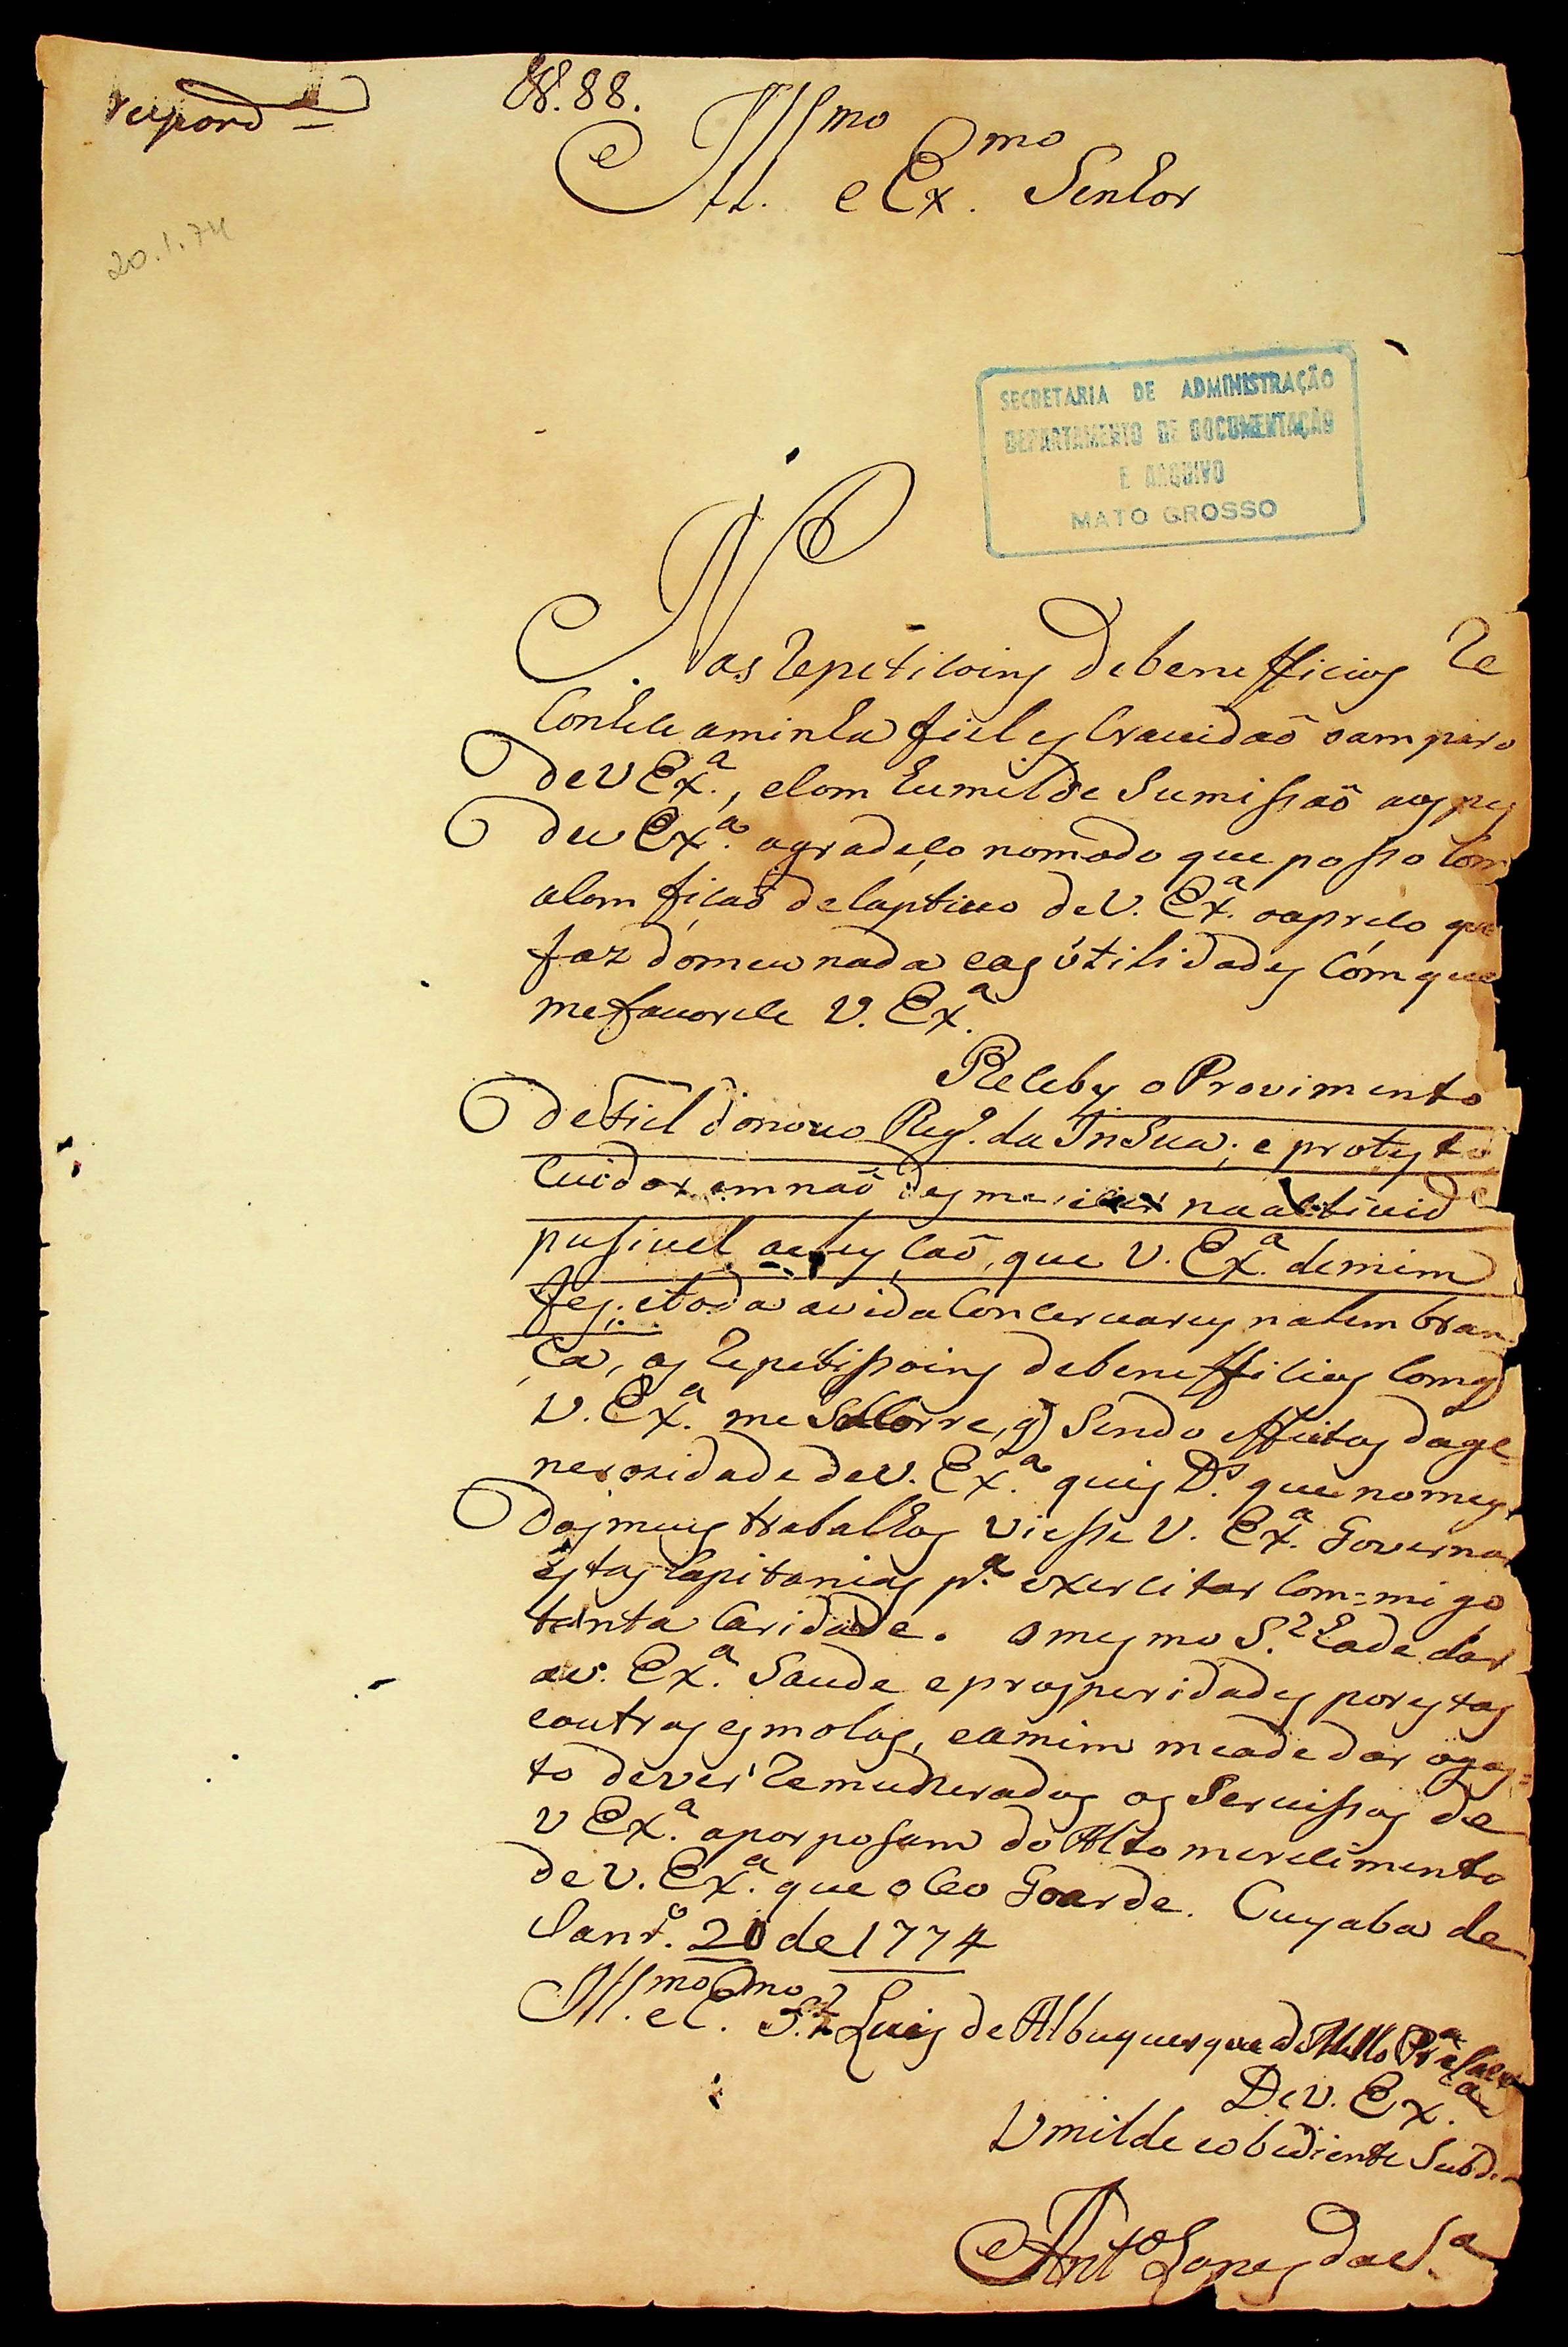 respond
N. 88.
Ill.mo e Ex.mo Senhor
20.1.74
SECRETARIA DE ADMINISTRAÇÃO
DEPARTAMENTO DE DOCUMENTAÇÃO
E ARQUIVO
MATO GROSSO
Nas repeticoins de benefficios Re
Conhece aminha fiel escravidaõ oamparo
de V Ex.ª, eCom humilde Sumissaõ aos pes
de V Ex.ª agradeço nomodo que posso Com
deCaptivo de V. Ex.ª oapreço que
faz domeu nada eas utilidades Com que
mefavorece V. Ex.ª
Receby o Provimento
deFiel donovo Reg.º da InSua; e protesto
Cuidar em naõ desmerecer na
pusivel aeleyçaõ, que V. Ex.ª demim
fes; etoda avida Concervarey nalembran
ça, as repetissoins debeneffícios Comq
V. Ex.ª me Socorre, q Sendo effeitos dage=
nerozidade deV. Ex.ª quis D.s que nomeyo
dos meus trabalhos viesse V. Ex.ª Governar
estas Capitanias p.ª exercitar Com=migo
tanta Caridade. omesmo S.r hade dar
aV. Ex.ª Saude eprosperidades porestas
eoutras esmolas, eamim meade dar ogos=
to dever remunerados os Servissos de
V Ex.ª apor posam do Alto merecimento
de V. Ex.ª que oCeo Goarde. Cuyaba de
Janr.º 20 de 1774
Ill.mo e E.mo S.r Luis de Albuquerque de Mello Pr.ª eCace
De V. Ex.ª
Umilde eobediente Subd.
Ant.º Lopes da S.ª